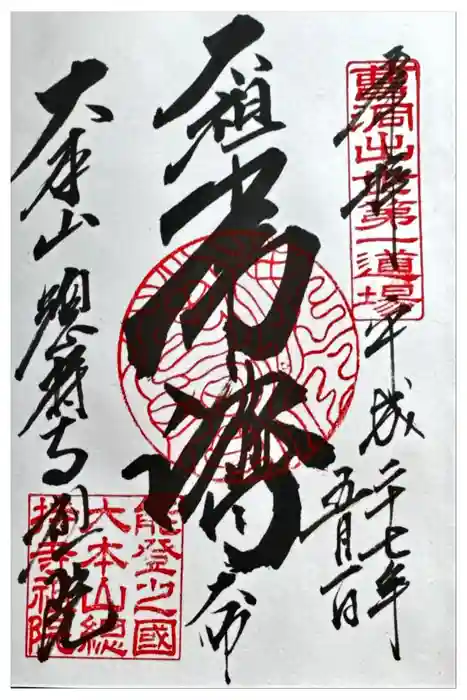 曹洞出世第一道場
奉拝 平成二十七年
五月一日
太祖常濟大師
大本山 總持寺祖院
能登之國
大本山總
持寺祖院